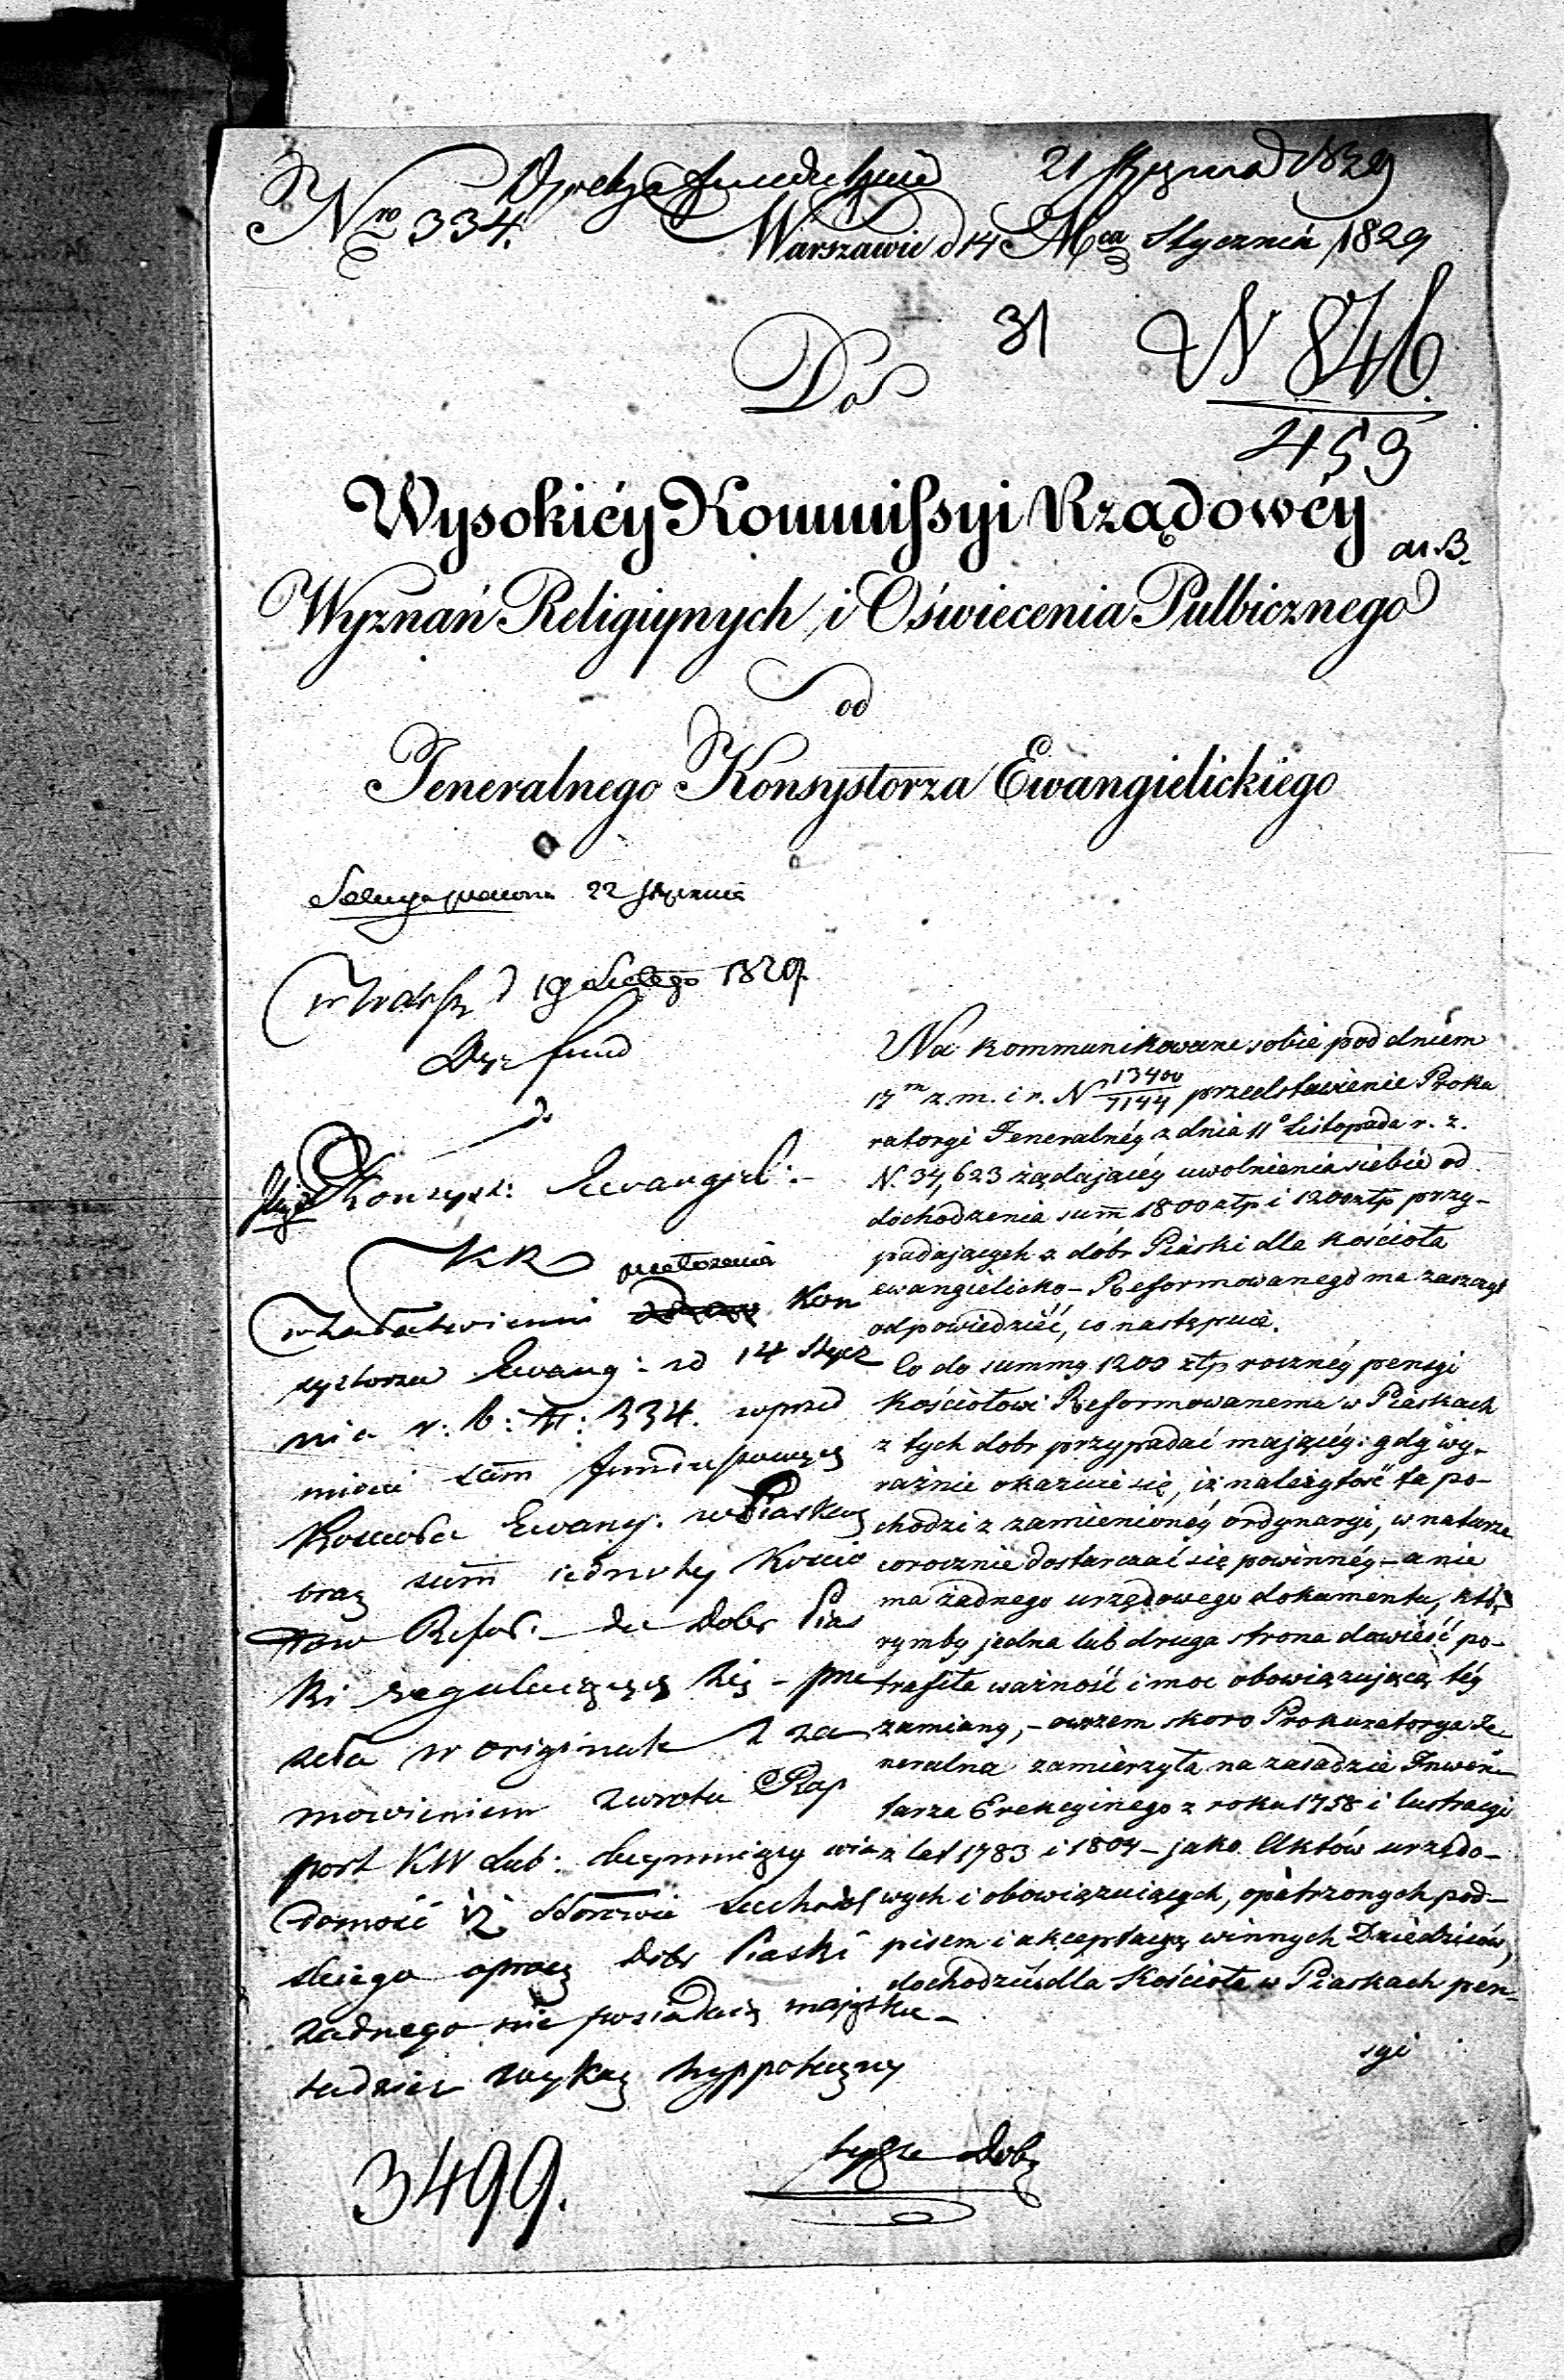 Dyrekcya Funduszów 21 Stycznia 1829
Nro 334.
Warszawie d 14 Mca Stycznia 1829
31 N 846.
Do
459
Wysokiéy Kommissyi Rządowéy
Wyznań Religiynych i Oświecenia Pulbicznego
od
Jeneralnego Konsystorza Ewangielickiego
22 Stycznia
w Warsz d 19 Lutego 1829.
Dyr fund
do
Konsyst: Ewangiel:
KR
w załatwieniu Kon
systorza Ewang: z d 14 Stycz
nia r: b: N: 334. wprzed
miocie summ funduszowych
Kościoła Ewang: w Piaskach
oraz summ
Refor. do dobr Pias
ki regulujących się – prze
seła w originale z za
mowieniem zwrotu Rap
port KW Lub: obeymujący wia
domość iż Sdorowie Suchodol
skiego oprocz Dobr Piaski
żadnego nie posiadaią majątku –
tudzież wykaz hyppoteczny
tychże Dobr
3499.
Na kommunikowane sobie pod dniem
17m z. m. i r. N 13400/7144 przedstawienie Proku
ratoryi Jeneralnéy z dnia 11o Listopada r. z.
N. 34,623 żądającéy uwolnienia siebie od
dochodzenia summ 1800 złp i 1200 złp przy-
padających z dóbr Piaski dla Kościoła
ewangielicko-Reformowanego ma zaszczyt
odpowiedzieć, co następuie.
Co do summy 1200 złp rocznéy pensyi
Kościołowi Reformowanemu w Piaskach
z tych dobr przypadać maiącéy: gdy wy-
raźnie okazuie się, iż należytość ta po-
chodzi z zamienionéy ordynaryi, w naturze
corocznie dostarczać się powinnéy – a nie
ma żadnego urzędowego dokumentu, któ-
rymby jedna lub druga strona dowieść po-
trafiła ważność i moc obowiązującą téy
zamiany, – owszem skoro Prokuratorya Je
neralna zamierzyła na zasadzie Inwen-
tarza Erekcyinego z roku 1758 i lustracyi
z lat 1783 i 1804 – jako Aktów urzędo-
wych i obowiązuiących, opatrzonych pod-
pisem i akceptacyą winnych Dziedziców,
dochodzić dla Kościoła w Piaskach pen-
syi